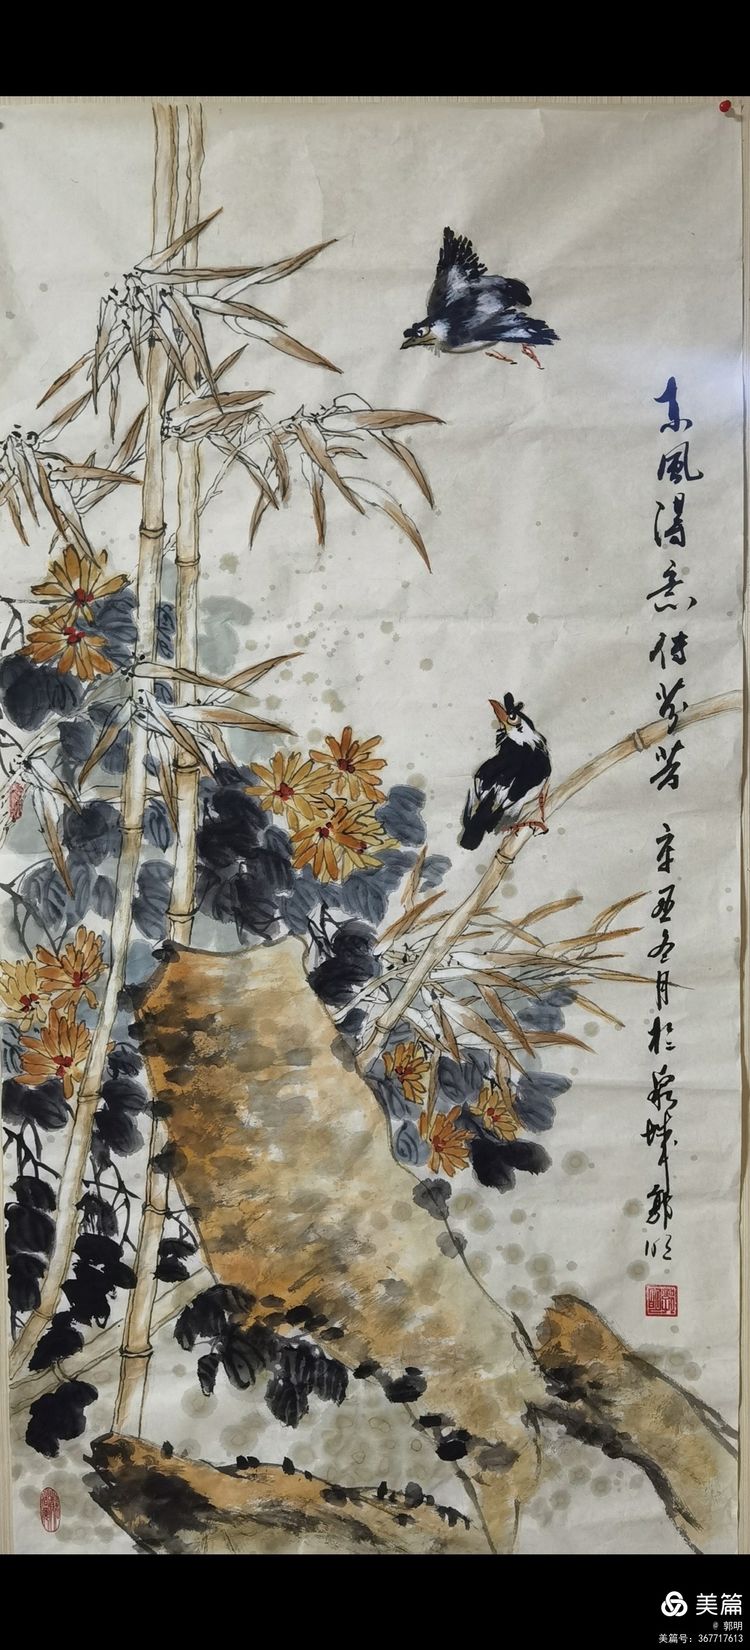 东風得意传芬芳 辛丑冬月於泉城郭明
美篇
@ 郭明
美篇号：367717613